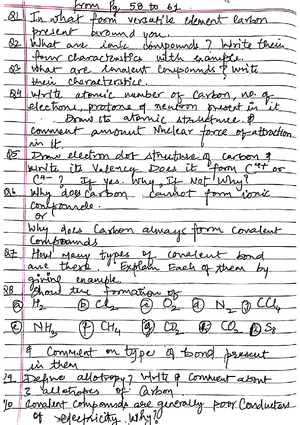 from Pg. 58 to 61
Q1 In what form versatile element carbon
present around you.
Q2 What are ionic compounds? Write their
four characteristics with example.
Q3 What are covalent compounds? write
their characteristics.
Q4 Write atomic number of carbon, no. of
electrons, protons & neutron present in it
Draw its atomic structure &
comment amount Nuclear force of attraction
in it.
Q5 Draw electron dot structure of carbon &
write its Valency. Does it form C4+ or
C4- ? If yes. Why, If Not Why?
Q6 Why does Carbon cannot form ionic
compounds.
or
Why does Carbon always form covalent
Compounds
Q7 How many types of covalent bond
are there. Explain Each of them by
giving example.
Q8 Show the formation of
a H2 b Cl2 c O2 d N2 CCl4
NH3 f CH4 g CO2 S8
& Comment on type of bond present
in them
Q9 Define allotropy? Write & comment about
3 allotropes of Carbon.
10 Covalent Compounds are generally poor Conductors
of electricity. Why?